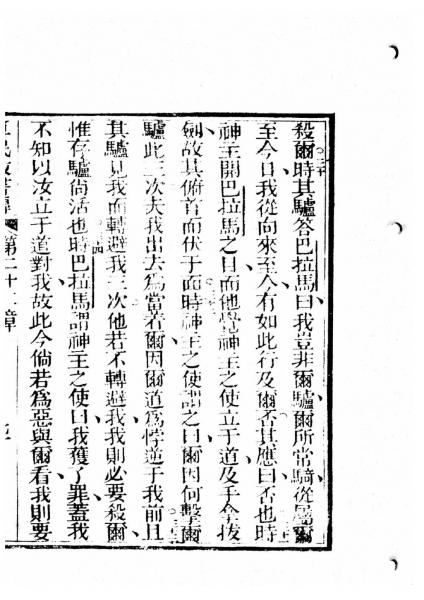 殺爾時其驢答巴拉馬曰我豈非爾驢爾所常騎從屬爾
至今日我從向來至今有如此行及爾否其應曰否也時
神主開巴拉馬之目而他覺神主之使立于道及手拿拔
劍故其俯首而伏于面時神主之使謂之曰爾因何擊爾
驢此三次夫我出去為當著爾因爾道為悖逆于我前且
其驢見我而轉避我三次他若不轉避我我則必要殺爾
惟存驢尚活也時巴拉馬謂神主之使曰我獲了罪蓋我
不知以汝立于道對我故此今倘若為惡與爾看我則要
第二十二章